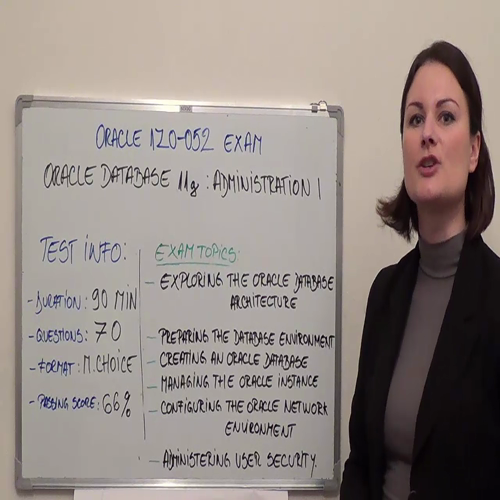 ORACLE 1Z0-052 EXAM
ORACLE DATABASE 11g : ADMINISTRATION I
TEST INFO:
- DURATION : 90 MIN
- QUESTIONS : 70
- FORMAT : M.CHOICE
- PASSING SCORE : 66%
EXAM TOPICS:
- EXPLORING THE ORACLE DATABASE
ARCHITECTURE
- PREPARING THE DATABASE ENVIRONMENT
- CREATING AN ORACLE DATABASE
- MANAGING THE ORACLE INSTANCE
- CONFIGURING THE ORACLE NETWORK
ENVIRONMENT
- ADMINISTERING USER SECURITY.